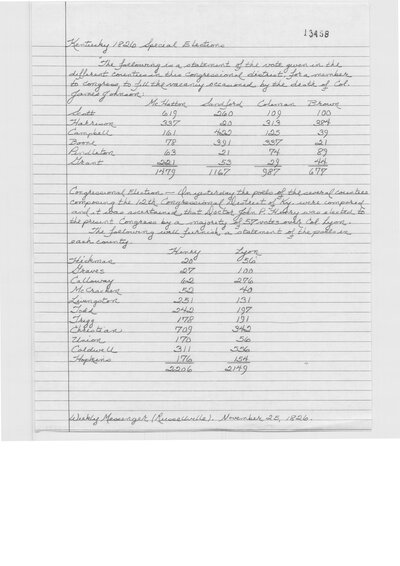 13458
Kentucky 1826 Special Elections
The following is a statement of the vote given in the
different counties in this Congressional district, for a member
to Congress, to fill the vacancy occasioned by the death of Col.
James Johnson.
McHatton Sandford Coleman Brown
Scott 619 260 109 100
Harrison 337 20 313 384
Campbell 161 422 125 39
Boone 78 391 337 21
Pendleton 63 21 74 89
Grant 221 53 29 44
1479 1167 987 677
Congressional Election — On yesterday the polls of the several counties
composing the 12th Congressional District of Ky. were compared
and it was ascertained that Doctor John F. Henry was elected to
the present Congress by a majority of 57 votes over Col. Lyon.
The following will furnish a statement of the polls in
each county.
Henry Lyon
Hickman 20 56
Graves 27 100
Calloway 62 276
McCracken 52 40
Livingston 251 131
Todd 242 197
Trigg 178 191
Christian 709 342
Union 170 56
Caldwell 311 556
Hopkins 176 154
2206 2149
Weekly Messenger (Russellville). November 25, 1826.